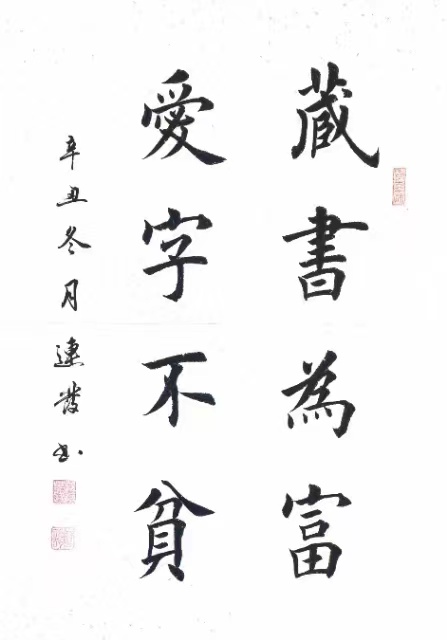 藏書為富
愛字不貧
辛丑冬月連發书